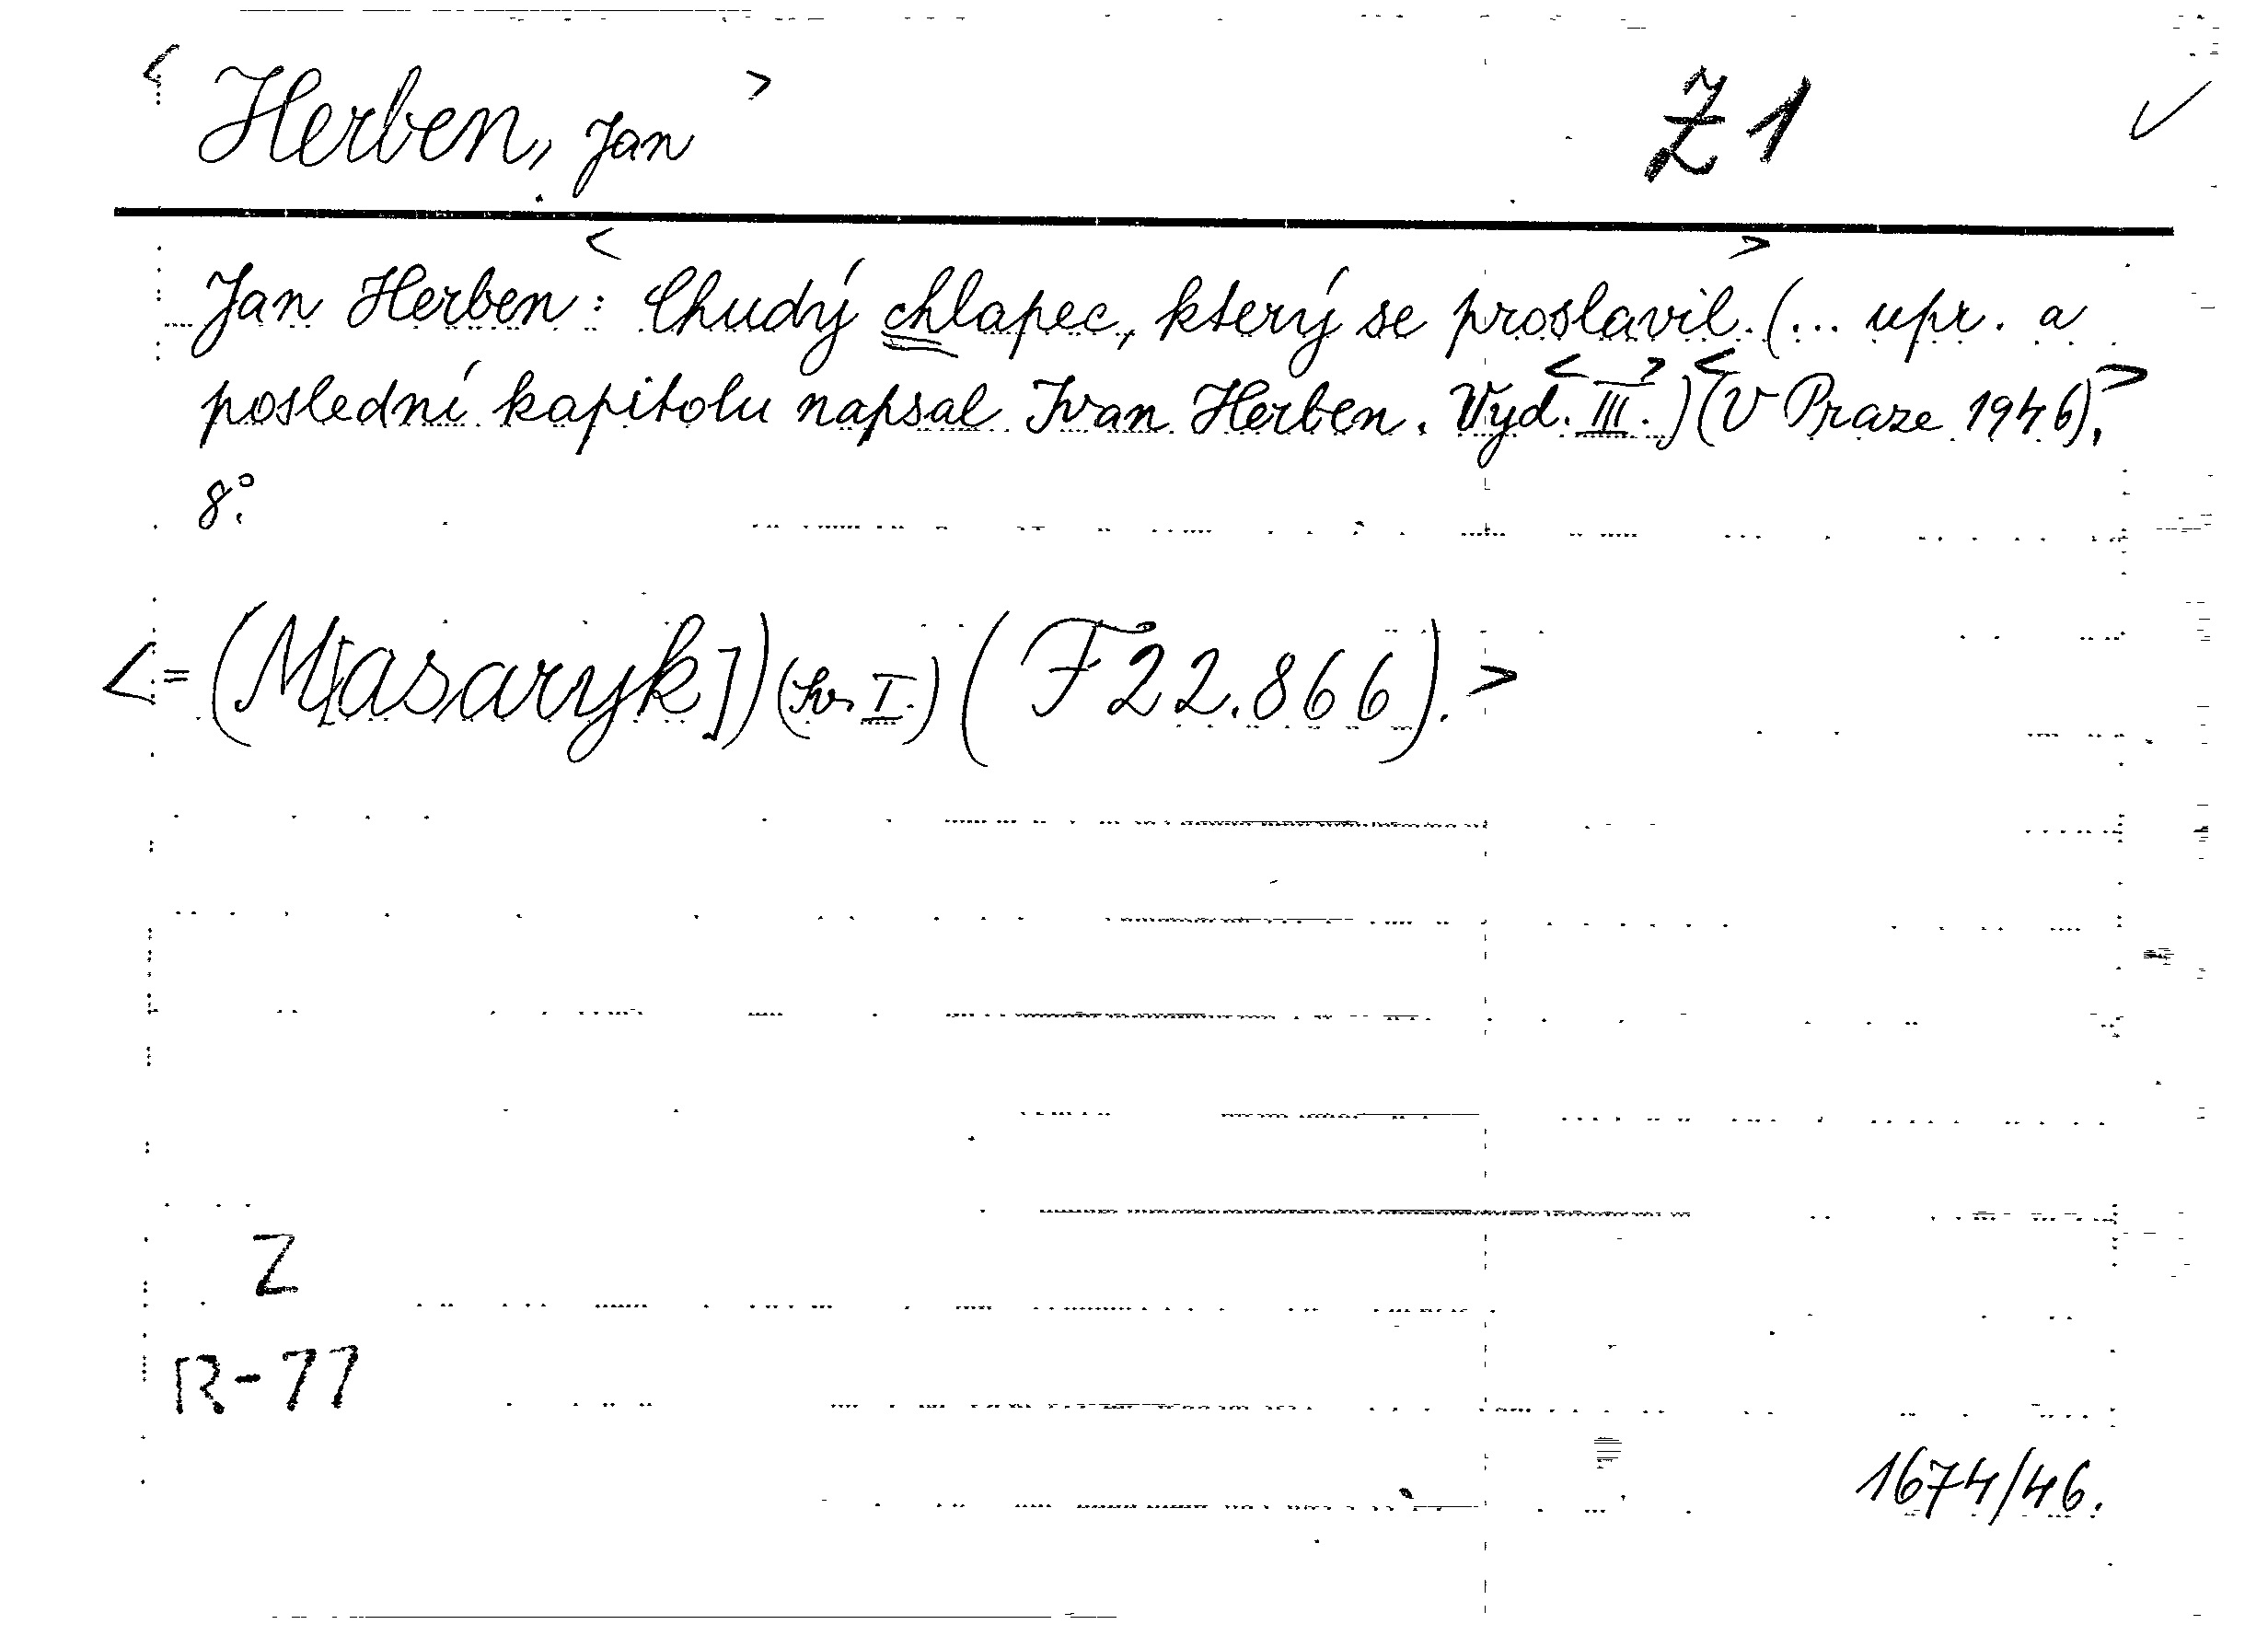 < Herben, Jan > Z 1 ✓
Jan Herben: < Chudý chlapec, který se proslavil. > (... upr. a
poslední kapitolu napsal Ivan Herben. Vyd. < III. > ) < (V Praze 1946). >
8°.
< = (M[asaryk]) (sv. I.) (F 22.866). >
Z
R-77
1674/46.